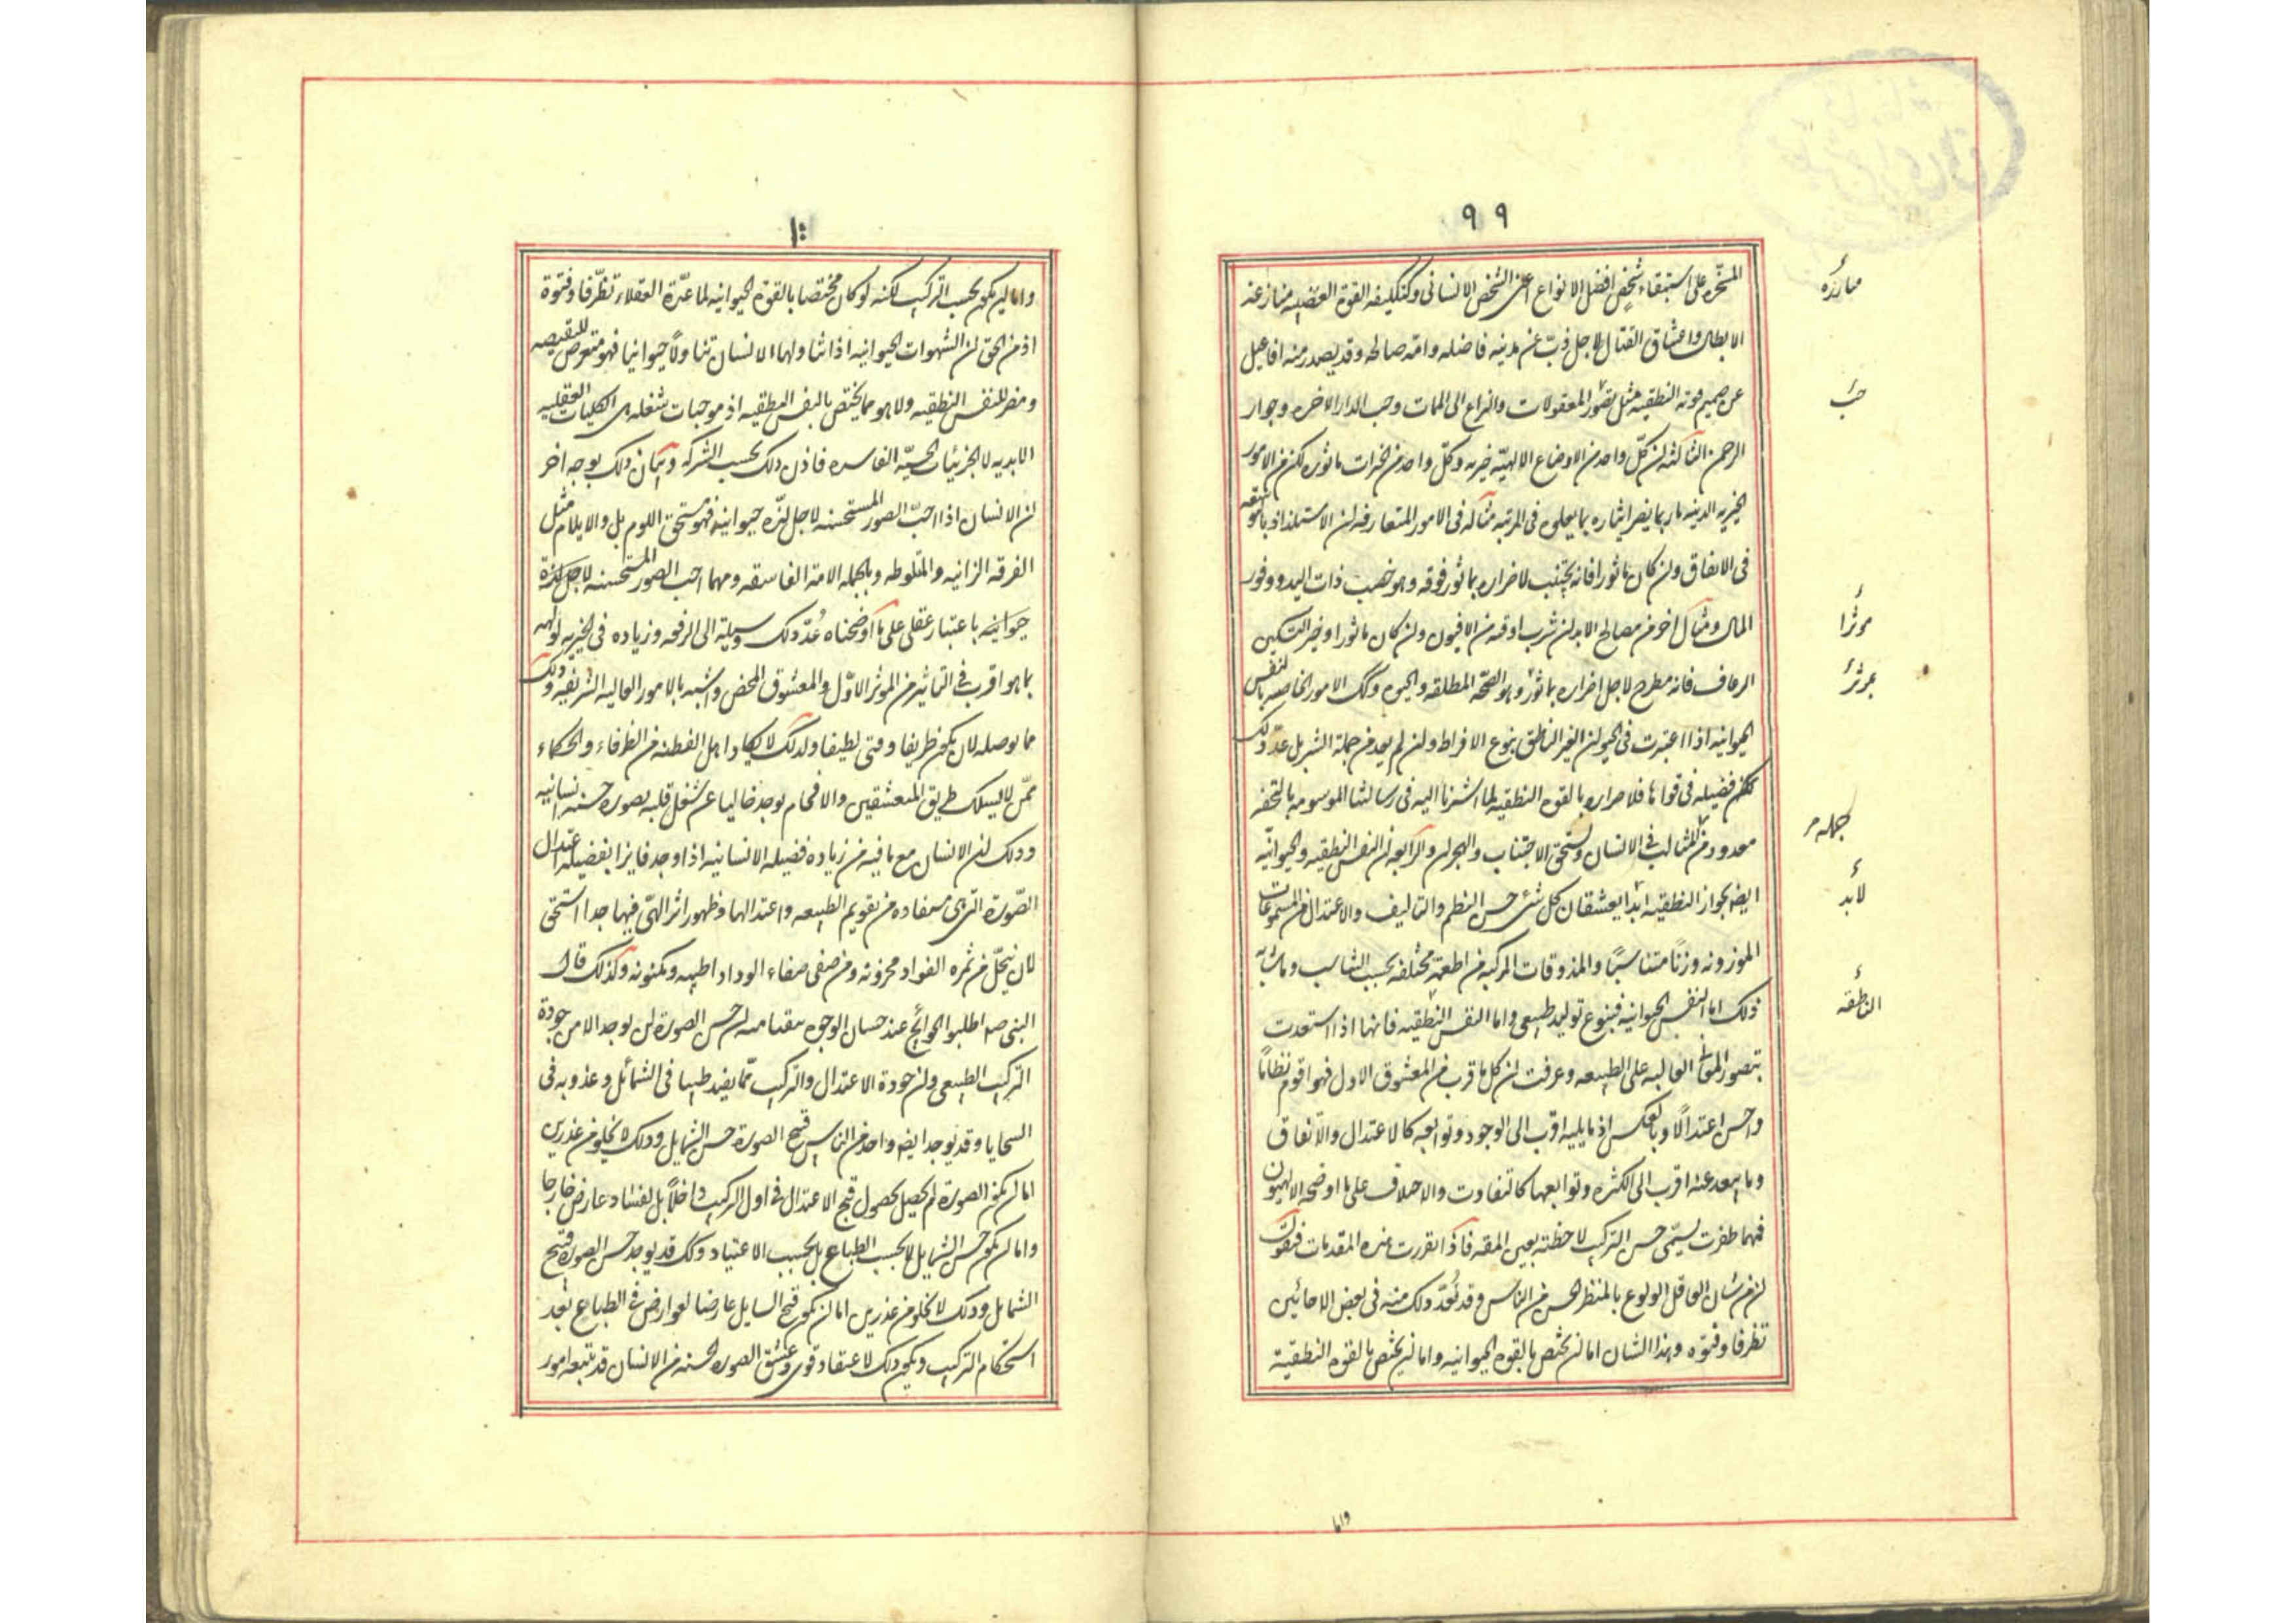 ٩٩
المسخره على استبقاء شخص افضل الانواع اعنى الشخص الانسانى وكتكليفه القوة الغضبيه منازعة
مبارزه
الابطال واعتناق القتال لاجل ذبّ عن مدينه فاضله وامه صالحه وقد يصدر منه افاعيل
عن صميم قوته النطقيه مثل تصور المعقولات والنزاع الى الممات وحب الدار الاخره وجوار
حبّ
الرحمن الثالثه ان كل واحد من الاوضاع الالهيه خيريه وكل واحد من الخيرات ماثوره لكن من الامور
الخيريه الدينيه ما ربما يضر ايثاره بما يعلوه فى المرتبه مثاله فى الامور المتعارفه ان الاستلذاذ بالتوسعه
فى الانفاق وان كان ماثورا فانه يجتنب لاضراره بماثور فوقه وهو خصب ذات اليد ووفور
المال ومثال اخر من مصالح الابدان شرب اوقيه من الافيون وان كان ماثورا وخيرا لتسكين
موثرا
الرعاف فانه مطرح لاجل اضراره بماثور وهو الصحه المطلقه والحيوه وكذلك الامور الخاصه بالنفس
بموثر
الحيوانيه اذا اعتبرت فى الحيوان الغير الناطق بنوع الافراط وان لم يعد من جملة الشر بل عدّ ذلك
فضيله فى قواها فلاضراره بالقوه النطقيه لما اشرنا اليه فى رسالتنا الموسومه بالتحفه
جمله
معدود من المثالب فى الانسان ويستحق الاجتناب والهجران والرابعه ان النفس النطقيه والحيوانيّه
ايضا لجوار النطقيه ابدا يعشقان كل شئ حسن النظم والتاليف والاعتدال من المسموعات
لابد
الموزونه وزنًا متناسبًا والمذوقات المركبه من اطعمة مختلفه بحسب التناسب وما شابه
ذلك اما النفس الحيوانيه فبنوع توليد طبيعى واما النفس النطقيه فانها اذا استعدت
الناطقه
بتصور المعانى العاليه على الطبيعه وعرفت ان كل ما قرب من المعشوق الاول فهو اقوم نظامًا
واحسن اعتدالًا وبالعكس اذ ما يليه اقرب الى الوجود وتوابعه كالاعتدال والاتفاق
وما ابعد عنه اقرب الى الكثره وتوابعها كالتفاوت والاختلاف على ما اوضحه الالهيون
فمهما ظفرت بشئ حسن التركيب لاحظته بعين المقه فاذا تقررت هذه المقدمات فنقول
ان من شان العاقل الولوع بالمنظر الحسن من الناس وقد يُعدّ ذلك منه فى بعض الاحائين
تظرفا وفتوّه وهذا الشان اما ان يختص بالقوه الحيوانيه واما ان يختص بالقوه النطقيّة
واما
١٠٠
واما ان يكون بحسب التركيب لكنه لو كان مختصا بالقوه الحيوانيه لما عدّه العقلاء تظرّفا وفتوّة
اذ من الحق ان الشهوات الحيوانيه اذا تناولها الانسان تناولًا حيوانيا فهو متعرض للنقيصه
ومضر للنفس النطقيه ولا هو مما يختص بالنفس النطقيه اذ موجبات شغله هى الكليات العقليه
الابديه لا الجزئيات الحسيّه الفاسده فاذن ذلك بحسب الشركه وبيان ذلك بوجه اخر
ان الانسان اذا احبّ الصور المستحسنه لاجل لذّه حيوانيه فهو مستحق اللوم بل والايلام مثل
الفرقه الزانيه والمتلوطه وبالجمله الامة الفاسقه ومهما احب الصور المستحسنه لاجل لذة
حيوانيه باعتبار عقلى على ما اوضحناه عُدّ ذلك وسيلة الى الرفعه وزياده فى الخيريه لولهه
بما هو اقرب فى التاثير من الموثر الاوّل والمعشوق المحض واشبه بالامور العاليه الشريفه وذلك
مما يوصله لان يكون ظريفا وفتى لطيفا ولذلك لا يكاد اهل الفطنه من الظرفاء والحكماء
ممّن لا يسلك طريق المتعشقين والاقحام يوجد خاليا عن شغل قلبه بصوره حسنه انسانيه
وذلك ان الانسان مع ما فيه من زياده فضيله الانسانيه اذا وجد فايزا بفضيله اعتدال
الصّورة التى هى مستفاده من تقويم الطبيعه واعتدالها وظهور اثر الهىّ فيها جدا استحق
لان ينحل من ثمره الفواد مخزونه ومن صفى صفاء الوداد اطيبه ومكنونه وكذلك قال
النبى صم اطلبوا الحوائج عند حسان الوجوه يقينا منه ان حسن الصورة لن يوجد الا من جودة
التركيب الطبيعى وان جودة الاعتدال والتركيب ممّا يفيد طيبا فى الشمائل وعذوبه فى
السجايا وقد يوجد ايضا واحد من الناس قبيح الصورة حسن الشمايل وذلك لا يخلو من عذرين
اما ان يكون الصورة لم يحصل بحصول قبح الاعتدال فى اول التركيب داخلًا بل لفساد عارض خارجا
واما ان يكون حسن الشمايل لا بحسب الطباع بل بحسب الاعتياد وكذلك قد يوجد حسن الصورة قبيح
الشمايل وذلك لا يخلو من عذرين اما ان يكون قبح الشمايل عارضا لعوارض فى الطباع بعد
استحكام التركيب ويكون ذلك لاعتياد قوى وعشق الصوره الحسنه من الانسان قد يتبعه امور